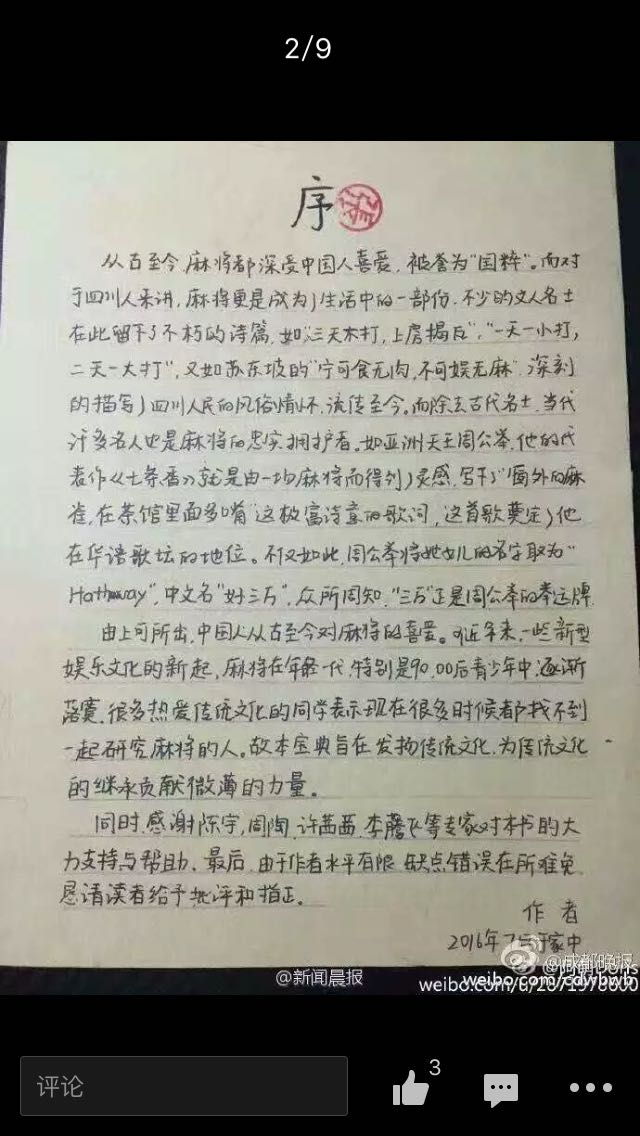 2/9
序
从古至今,麻将都深受中国人喜爱,被誉为"国粹"。而对
于四川人来讲,麻将更是成为了生活中的一部份,不少的文人名士
在此留下了不朽的诗篇,如"三天不打,上房揭瓦","一天一小打,
二天一大打",又如苏东坡的"宁可食无肉,不可娱无麻",深刻
的描写了四川人民的风俗情怀,流传至今。而除去古代名士,当代
许多名人也是麻将的忠实拥护者。如亚洲天王周公举,他的代
表作《七条香》就是由一场麻将而得到了灵感,写下了"窗外的麻
雀,在茶馆里面多嘴"这极富诗意的歌词,这首歌奠定了他
在华语歌坛的地位。不仅如此,周公举将她女儿的名字取为"
Hathaway",中文名"好三万",众所周知,"三万"正是周公举的幸运牌.
由上可所出,中国人从古至今对麻将的喜爱。可近年来,一些新型
娱乐文化的新起,麻将在年轻一代,特别是90,00后青少年中,逐渐
落寞,很多热爱传统文化的同学表示现在很多时候都找不到
一起研究麻将的人。故本宝典旨在发扬传统文化,为传统文化
的继承贡献微薄的力量。
同时,感谢陈宇,周陶,许茜茜,李腾飞等专家对本书的大
力支持与帮助、最后,由于作者水平有限,缺点错误在所难免,
恳请读者给予批评和指正。
作者
2016年7月于家中
@成都晚报
@新闻晨报
weibo.com/cdwbwb
评论
3